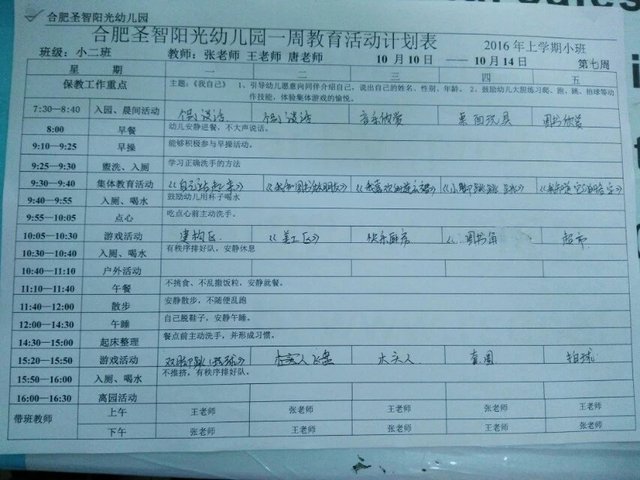 合肥圣智阳光幼儿园
合肥圣智阳光幼儿园一周教育活动计划表
班级：小二班 教师：张老师 王老师 唐老师 10月10日——10月14日 2016年上学期小班 第七周
星期 一 二 三 四 五
保教工作重点 主题：《我自己》 1、引导幼儿愿意向同伴介绍自己，说出自己的姓名、性别、年龄。 2、鼓励幼儿大胆练习爬、跑、跳、拍球等动作技能，体验集体游戏的愉悦。
7:30—8:40 入园、晨间活动 个别谈话 个别谈话 音乐欣赏 桌面玩具 图书欣赏
8:00 早餐 幼儿安静进餐，不大声说话。
9:10—9:25 早操 能够积极参与早操活动。
9:25—9:30 盥洗、入厕 学习正确洗手的方法
9:30—9:40 集体教育活动
9:40—9:55 入厕、喝水 鼓励幼儿用杯子喝水
9:55—10:05 点心 吃点心前主动洗手。
10:05—10:30 游戏活动 建构区 《美工区》 快乐厨房 《图书角 超市
10:30—10:40 入厕、喝水 有秩序排好队，安静休息
10:40—11:10 户外活动
11:10—11:40 午餐 不挑食、不乱撒饭粒，安静就餐。
11:40—12:00 散步 安静散步，不随便乱跑
12:00—14:30 午睡 自己脱鞋子，安静午睡。
14:30—15:00 起床整理 餐点前主动洗手，并形成习惯。
15:20—15:50 游戏活动 木头人 拍球
15:50—16:00 入厕、喝水 不推挤，有秩序排好队。
16:00—16:30 离园活动
带班教师 上午 王老师 张老师 王老师 张老师 王老师
下午 张老师 王老师 张老师 王老师 张老师